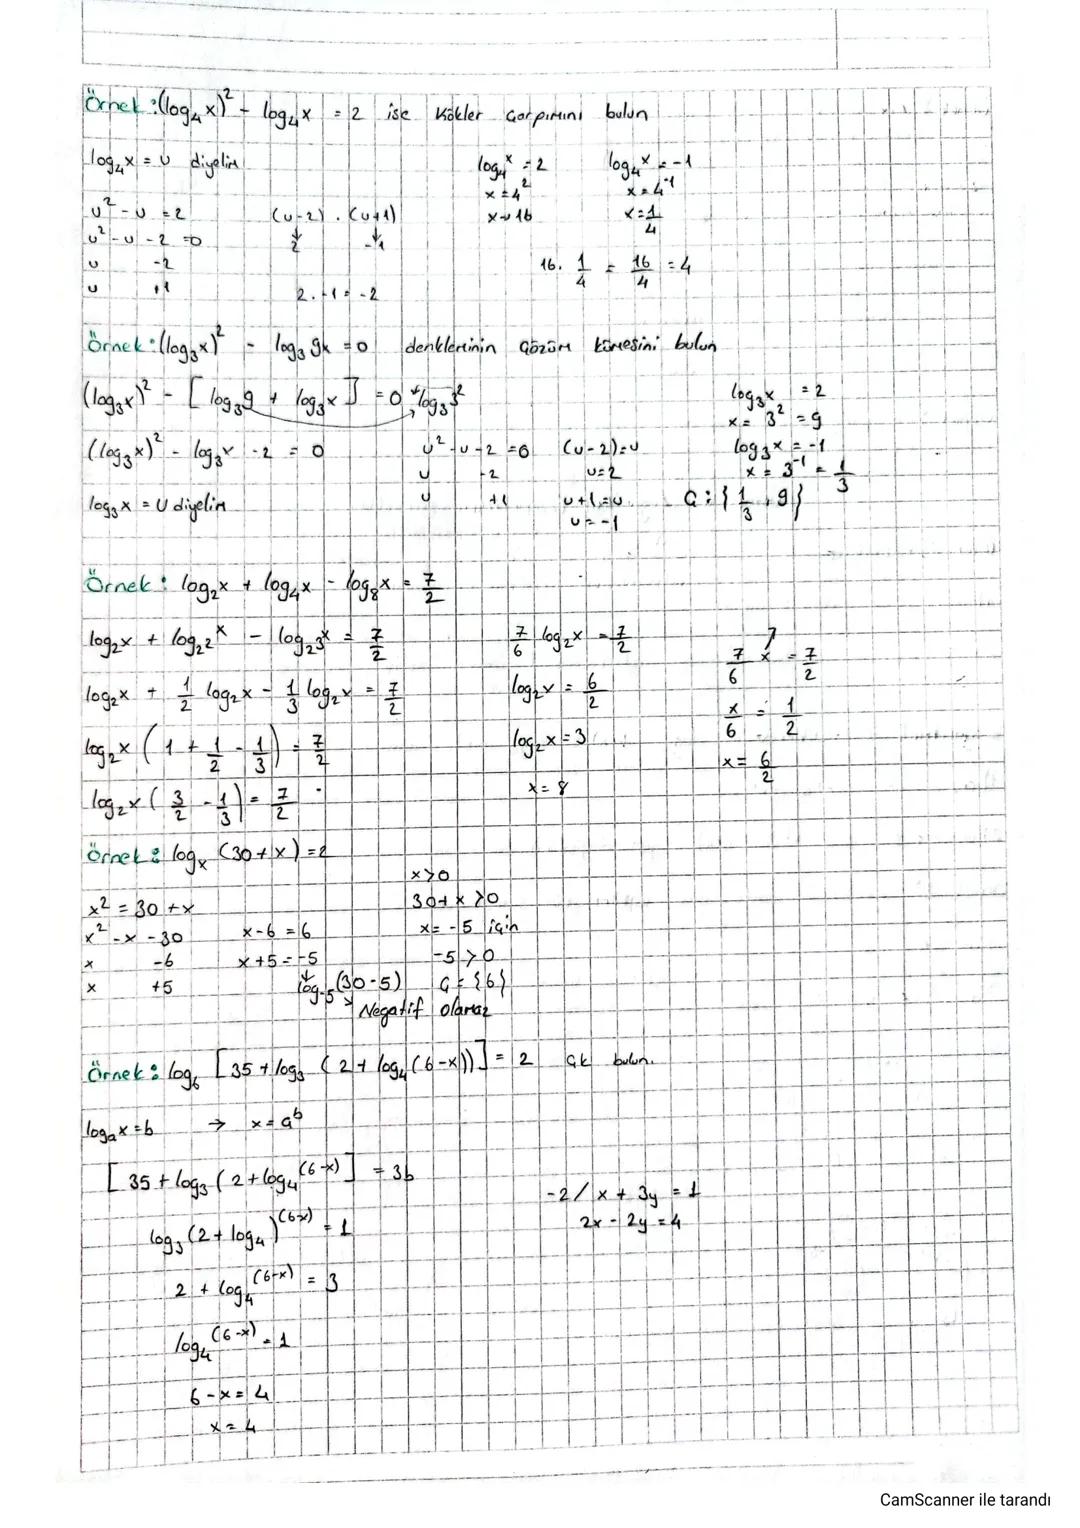 Örnek : (log₄x)² - log₄x = 2 ise Kökler Çarpımını bulun
log₄x = u diyelim
u² - u = 2
u² - u - 2 = 0
u -2
u +1
(u-2) . (u+1)
2 -1
2 . -1 = -2
log₄ˣ = 2
x = 4²
x = 16
log₄ˣ = -1
x = 4⁻¹
x = 1/4
16 . 1/4 = 16/4 = 4
Örnek : (log₃x)² - log₃9x = 0 denkleminin Çözüm kümesini bulun
(log₃x)² - [log₃9 + log₃x] = 0 log₃3²
(log₃x)² - log₃x - 2 = 0
log₃x = U diyelim
u² - u - 2 = 0
u -2
u +1
(u-2) = u
u = 2
u + 1 = u
u = -1
log₃x = 2
x = 3² = 9
log₃x = -1
x = 3⁻¹ = 1/3
Ç : {1/3, 9}
Örnek : log₂x + log₄x - log₈x = 7/2
log₂x + log₂2ˣ - log₂3ˣ = 7/2
log₂x + 1/2 log₂x - 1/3 log₂x = 7/2
log₂x (1 + 1/2 - 1/3) = 7/2
log₂x (3/2 - 1/3) = 7/2
7/6 log₂x = 7/2
log₂x = 6/2
log₂x = 3
x = 8
7/6 x = 7/2
x/6 = 1/2
x = 6/2
Örnek : logₓ (30+x) = 2
x² = 30 + x
x² - x - 30
x -6
x +5
x-6 = 6
x+5 = -5
log₋₅(30-5)
Negatif olamaz
x>0
30+x >0
x = -5 için
-5 >0
Ç = {6}
Örnek : log₆ [35 + log₃ (2 + log₄(6-x))] = 2 Çk bulun.
logₐx = b → x = aᵇ
[35 + log₃ (2 + log₄⁽⁶⁻ˣ⁾] = 36
log₃ (2 + log₄)⁽⁶⁻ˣ⁾ = 1
2 + log₄⁽⁶⁻ˣ⁾ = 3
log₄⁽⁶⁻ˣ⁾ = 1
6 - x = 4
x = 4
-2/ x + 3y = 1
2x - 2y = 4
CamScanner ile tarandı